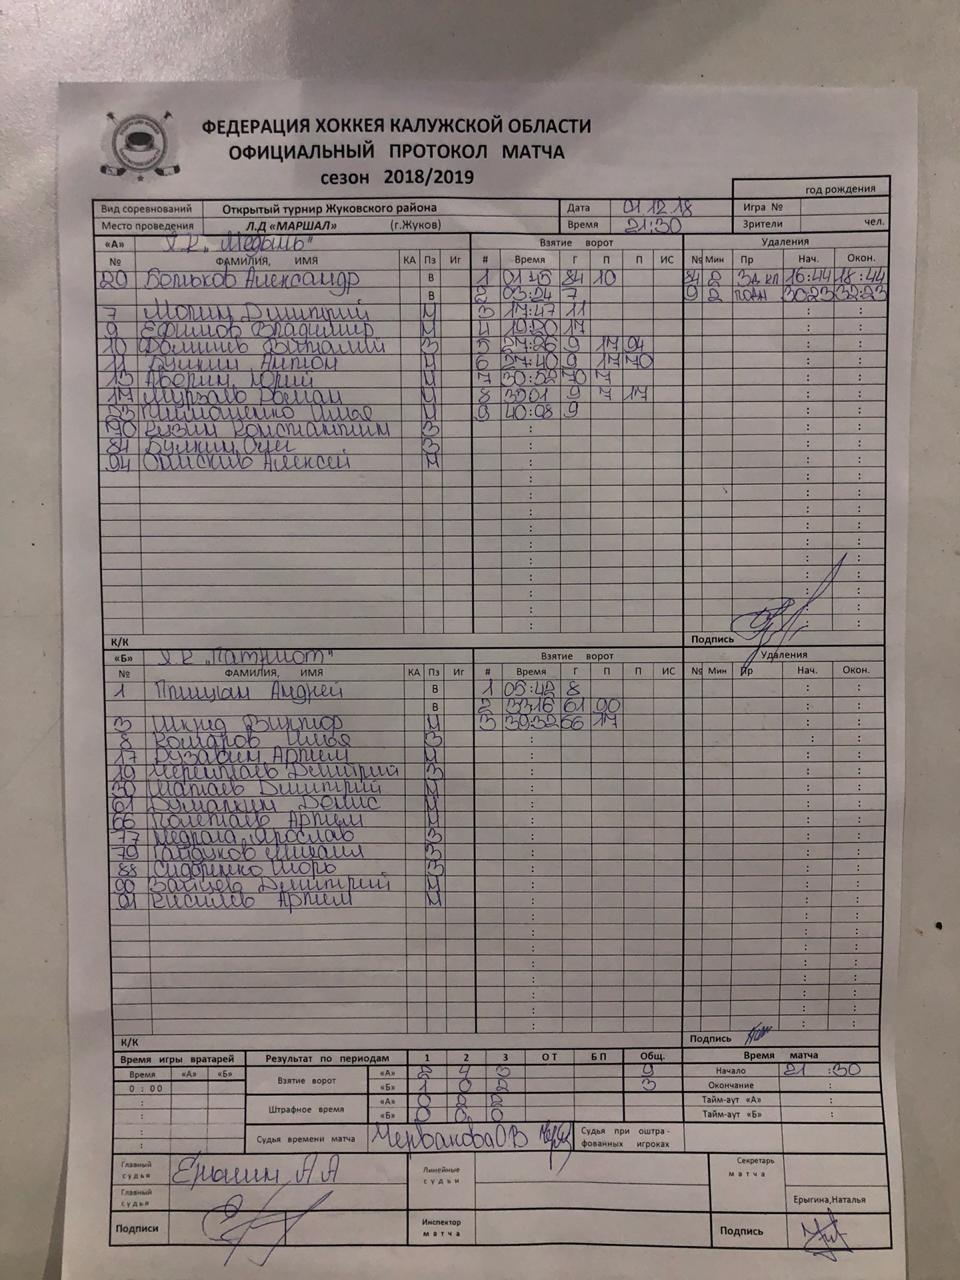 ФЕДЕРАЦИЯ ХОККЕЯ КАЛУЖСКОЙ ОБЛАСТИ
ОФИЦИАЛЬНЫЙ ПРОТОКОЛ МАТЧА
сезон 2018/2019
год рождения
Вид соревнований Открытый турнир Жуковского района Дата 01 12 18 Игра №
Место проведения Л.Д «МАРШАЛ» (г.Жуков) Время 21:30 Зрители чел.
«А» Х.К. „Медынь" Взятие ворот Удаления
№ ФАМИЛИЯ, ИМЯ КА Пз Иг # Время Г П П ИС № Мин Пр Нач. Окон.
20 Александр В 1 01:45 84 10 84 2 16:44 18:44
В 2 03:24 7 9 2 30:23 32:23
7 Дмитрий Н 3 17:47 11
9 Ефимов Владимир Н 4 19:20 17
10 Виталий З 5 27:26 9 17 94
11 Булкин Антон Н 6 27:40 9 17 70
13 Аверин Юрий Н 7 30:52 70 7
17 Мурзаев Роман Н 8 9 7 17
Тимошенко Илья Н 9 40:08 9
Кузин Константин З
84 Булкин Олег З
94 Алексей Н
К/К Подпись
«Б» Х.К „Патриот" Взятие ворот Удаления
№ ФАМИЛИЯ, ИМЯ КА Пз Иг # Время Г П П ИС № Мин Пр Нач. Окон.
1 Андрей В 1 05:42 8
В 2 33:16 61 90
3 Виктор Н 3 39:32 66 17
8 Комаров Илья З
17 Артем Н
19 Дмитрий З
30 Дмитрий Н
61 Денис Н
66 Полетаев Артем Н
77 Ярослав З
79 Гайдуков Михаил З
88 Сидоренко Игорь З
90 Зайцев Дмитрий Н
91 Киселев Артем Н
К/К Подпись
Время игры вратарей Результат по периодам 1 2 3 О Т Б П Общ. Время матча
Время «А» «Б» Взятие ворот «А» 2 4 3 9 Начало 21 :30
0 : 00 «Б» 1 0 2 3 Окончание :
Штрафное время «А» 0 2 2 Тайм-аут «А» :
«Б» 0 0 0 Тайм-аут «Б» :
Судья времени матча Червакова О В Судья при оштра-
фованных игроках
Главный судья А А Линейные судьи Секретарь матча
Главный судья Ерыгина,Наталья
Подписи Инспектор матча Подпись